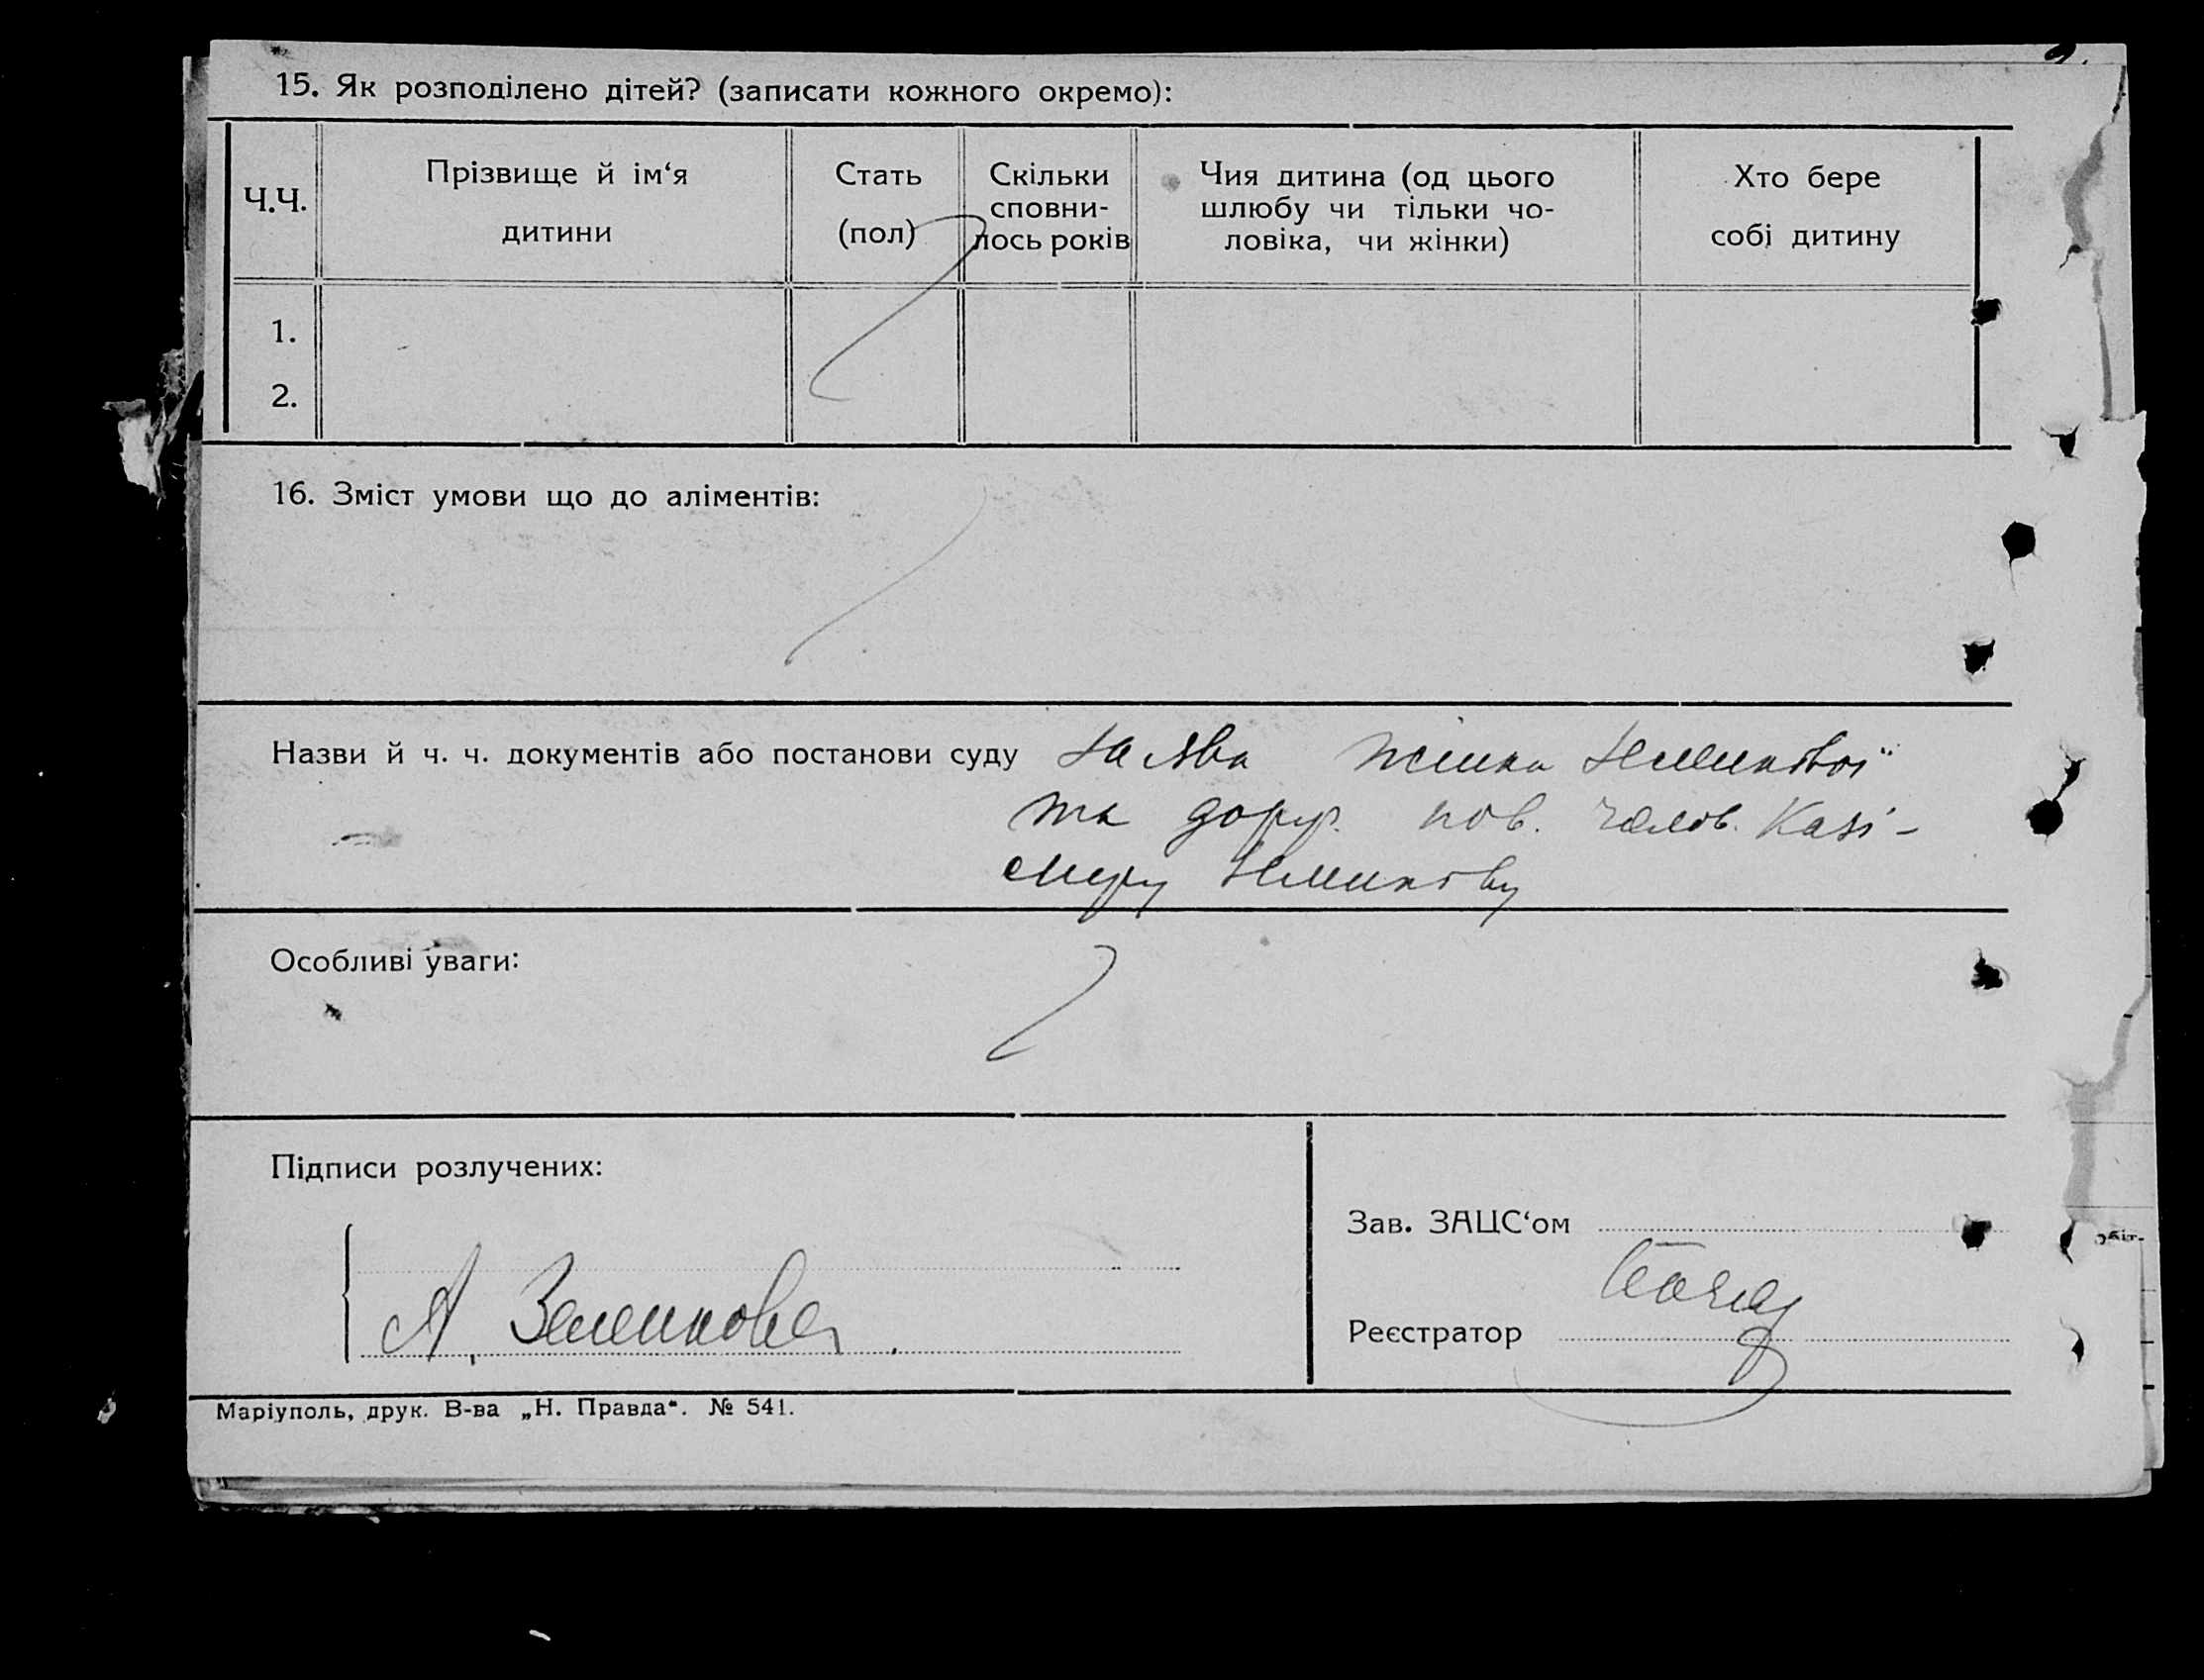 15. Як розподілено дітей? (записати кожного окремо):
Ч.Ч.
Прізвище й ім‘я
дитини
Стать
(пол)
Скільки
сповни-
лось років
Чия дитина (од цього
шлюбу чи тільки чо-
ловіка, чи жінки)
Хто бере
собі дитину
1.
2.
16. Зміст умови що до аліментів:
Назви й ч. ч. документів або постанови суду заява жінки
та доруч. пов. чолов. Казі-
миру
Особливі уваги:
Підписи розлучених:
А. Земликова
Зав. ЗАЦС‘ом
Реєстратор
Маріуполь, друк. В-ва „Н. Правда“. № 541.